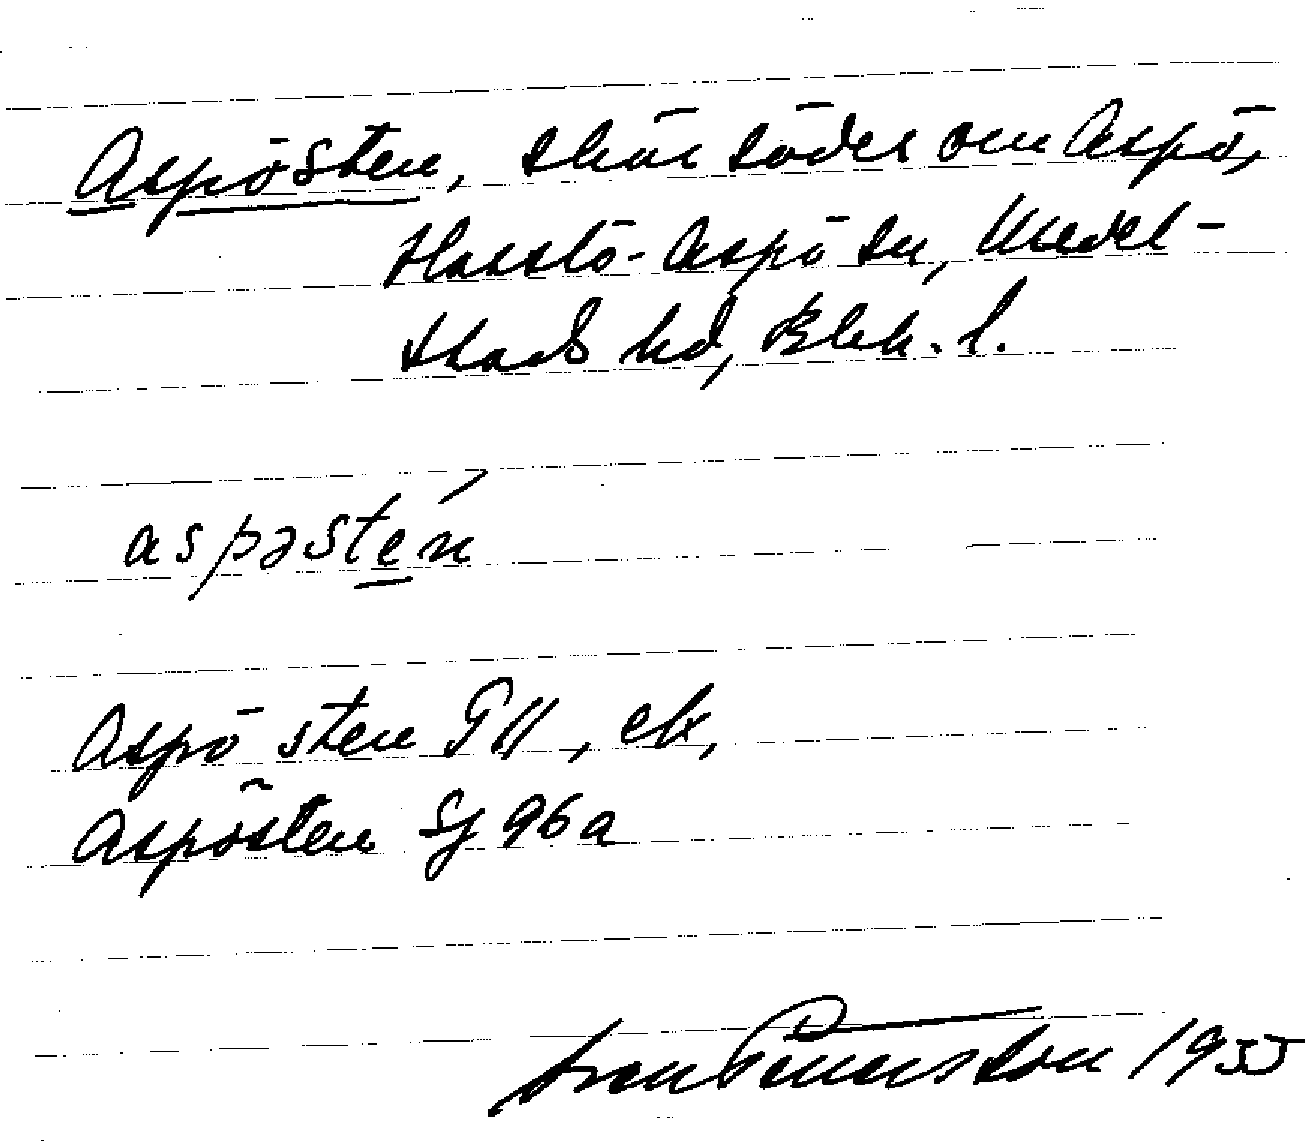 Aspösten, skär söder om Aspö,
Hasslö-Aspö sn, Medel-
stads hd, Blek. l.
aspəsten
Aspö sten GK, ek,
Aspösten Sj 96a
Sven Benson 1955